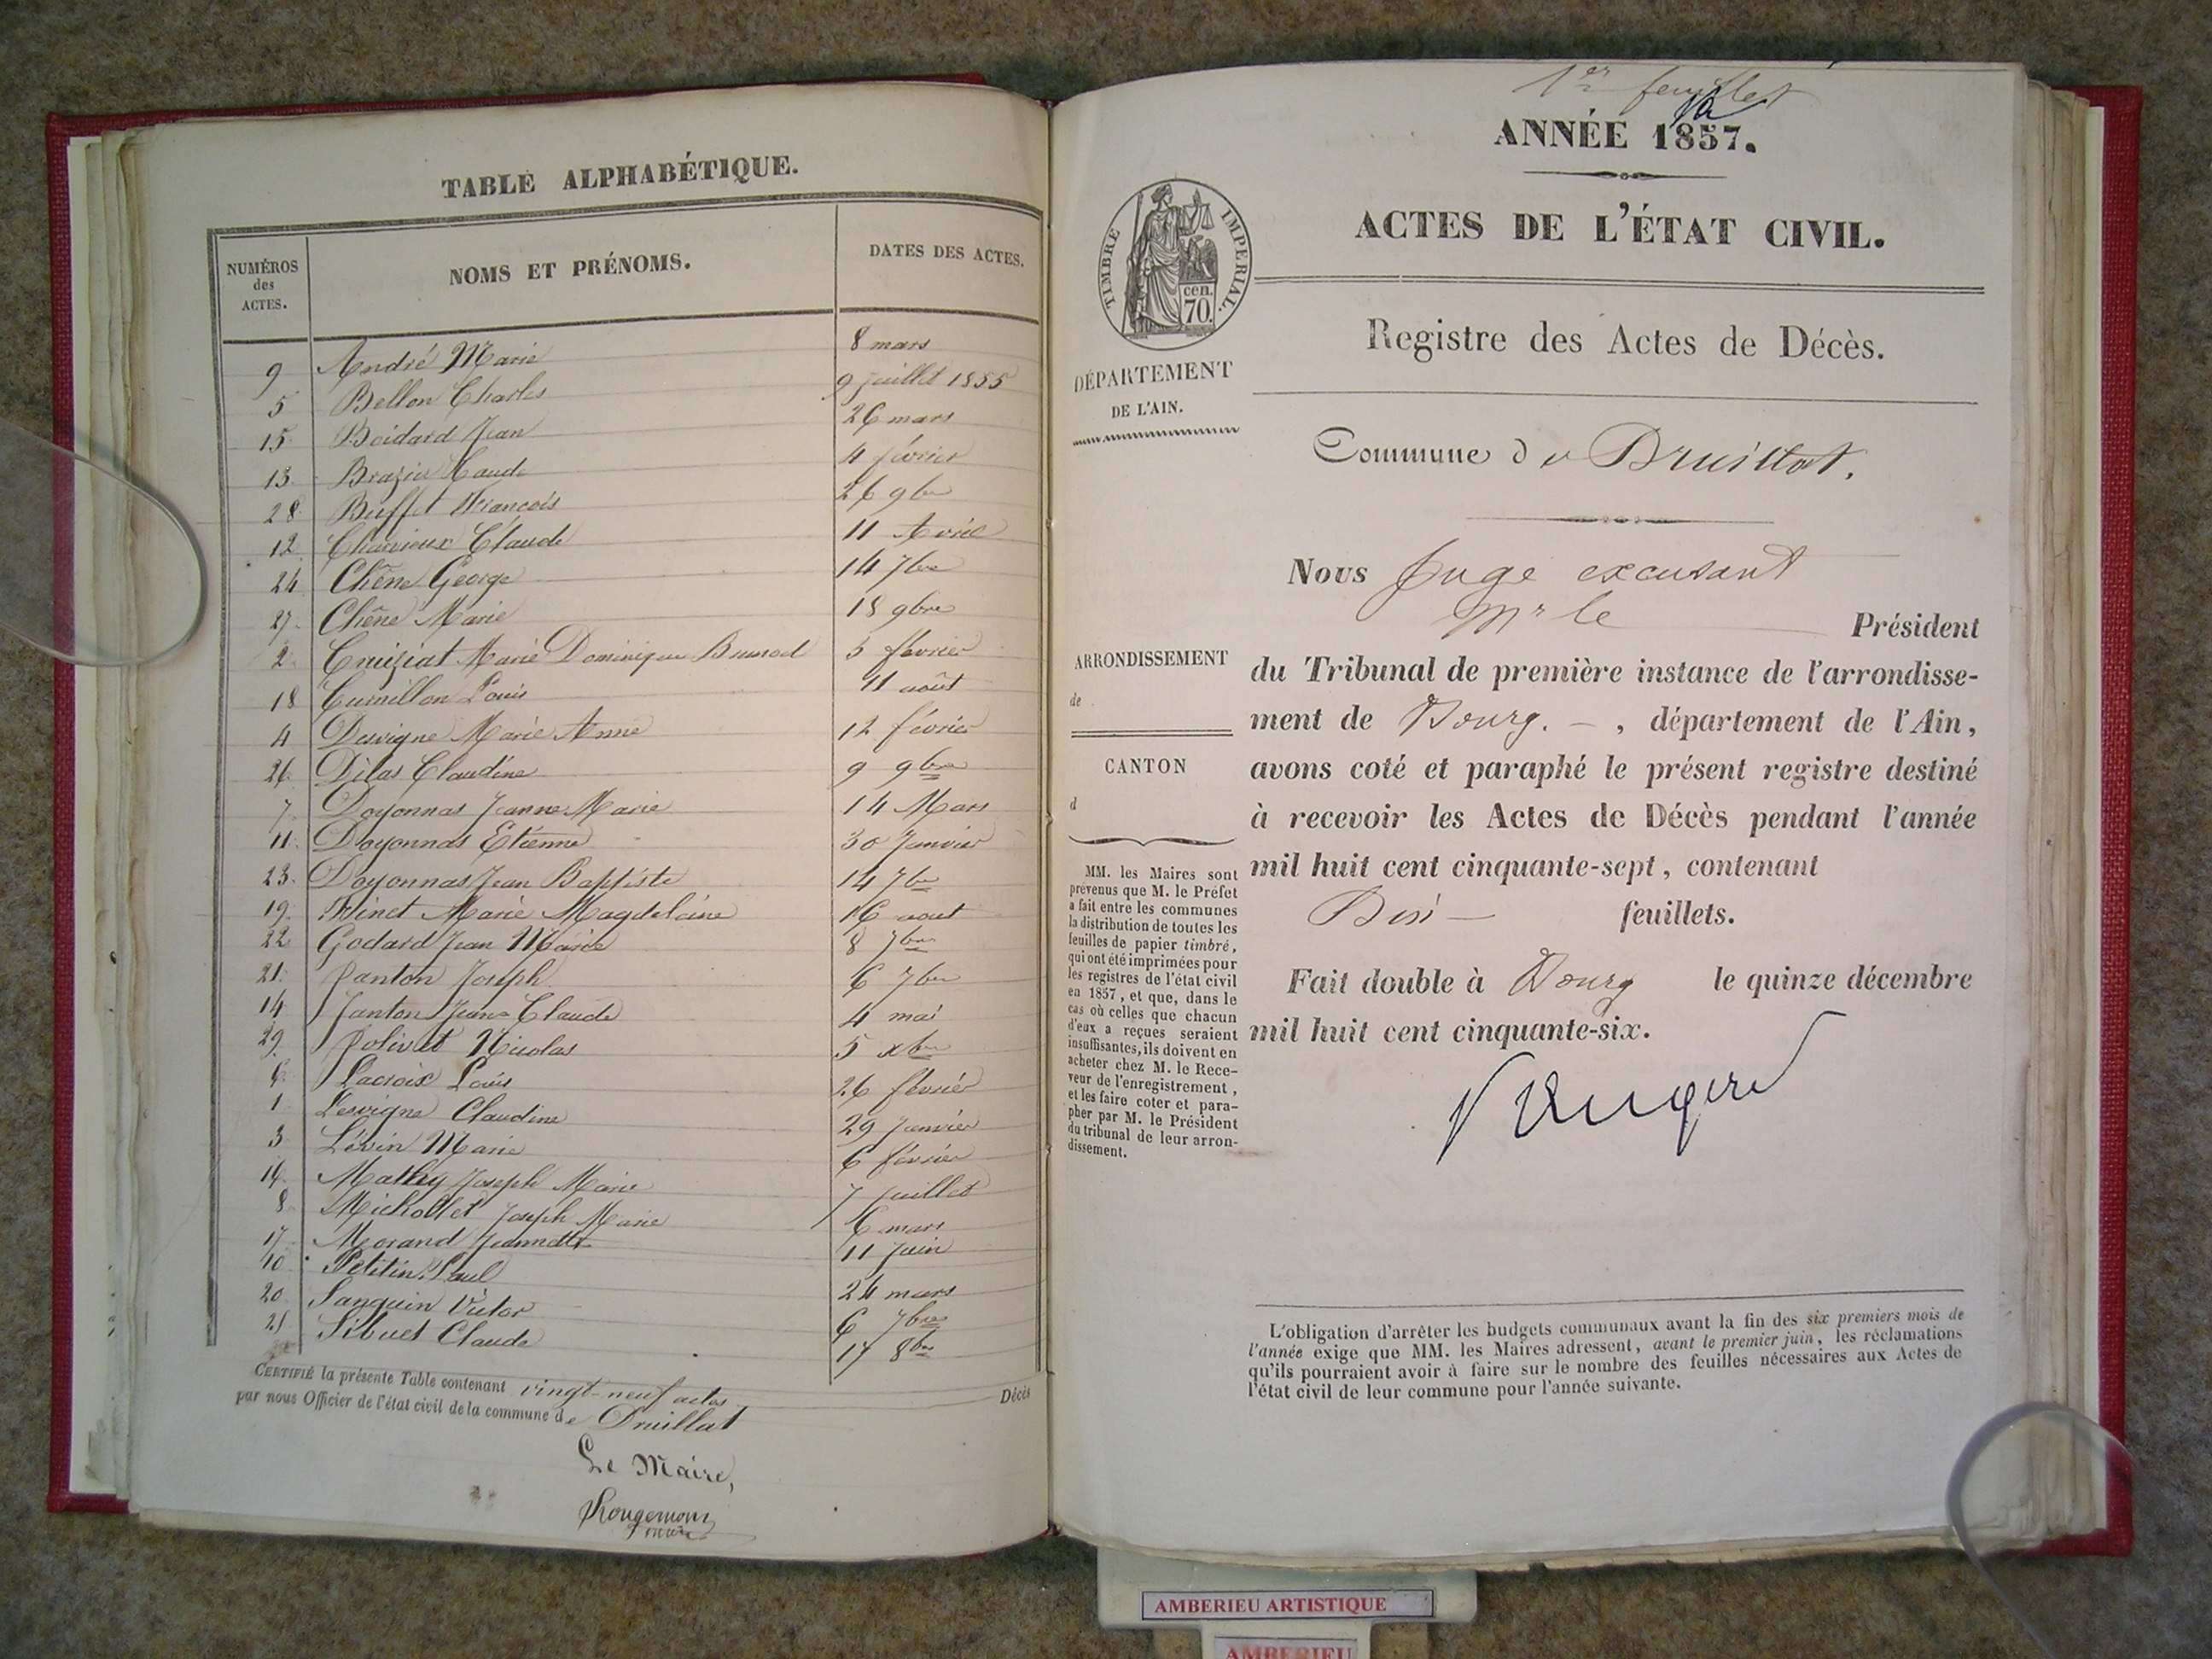 TABLE ALPHABÉTIQUE.
NUMÉROS des ACTES. NOMS ET PRÉNOMS. DATES DES ACTES.
9 André Marie 8 mars
5 Bellon Charles 9 juillet 1855
15 Boidard Jean 26 mars
13 Brazier Claude 4 février
28 Buffet François 26 9bre
12 Charvieux Claude 11 Avril
24 Chêne George 14 7bre
27 Chêne Marie 18 9bre
2 Cruiziat Marie Dominique Brunod 3 février
18 Cumillon Louis 11 août
4 Desvigne Marie Anne 12 février
26 Dilas Claudine 9 9bre
7 Doyonnas Jeanne Marie 14 Mars
11 Doyonnas Etienne 30 Janvier
23 Doyonnas Jean Baptiste 14 7bre
19 Finet Marie Magdelaine 16 aout
22 Godard Jean Marie 8 7bre
21 Janton Joseph 6 7bre
14 Janton Jean-Claude 4 mai
29 Jolivet Nicolas 5 xbre
6 Lacroix Louis 26 février
1 Lesvigne Claudine 29 Janvier
3 Lévin Marie 6 février
14 Mathy Joseph Marie 7 juillet
8 Michollet Joseph Marie 6 mars
17 Morand Jeannette 11 Juin
10 Petitin Paul 24 mars
20 Sanguin Victor 6 7bre
21 Sibuet Claude 17 8bre
CERTIFIÉ la présente Table contenant vingt-neuf actes
Décès
par nous Officier de l'état civil de la commune de Druillat
Le Maire,
Rougemont
maire
1er feuillet
ANNÉE 1857.
ACTES DE L'ÉTAT CIVIL.
TIMBRE IMPERIAL.
cen.
70.
DÉPARTEMENT
DE L'AIN.
Registre des Actes de Décès.
Commune de Druillat.
Nous Juge excusant
Mr le Président
du Tribunal de première instance de l'arrondisse-
ment de Bourg. - , département de l'Ain,
avons coté et paraphé le présent registre destiné
à recevoir les Actes de Décès pendant l'année
mil huit cent cinquante-sept, contenant
Dix feuillets.
Fait double à Bourg le quinze décembre
mil huit cent cinquante-six.
ARRONDISSEMENT
de
CANTON
d
MM. les Maires sont
prévenus que M. le Préfet
a fait entre les communes
la distribution de toutes les
feuilles de papier timbré,
qui ont été imprimées pour
les registres de l'état civil
en 1857, et que, dans le
cas où celles que chacun
d'eux a reçues seraient
insuffisantes, ils doivent en
acheter chez M. le Rece-
veur de l'enregistrement,
et les faire coter et para-
pher par M. le Président
du tribunal de leur arron-
dissement.
L'obligation d'arrêter les budgets communaux avant la fin des six premiers mois de
l'année exige que MM. les Maires adressent, avant le premier juin, les réclamations
qu'ils pourraient avoir à faire sur le nombre des feuilles nécessaires aux Actes de
l'état civil de leur commune pour l'année suivante.
AMBERIEU ARTISTIQUE
AMBERIEU